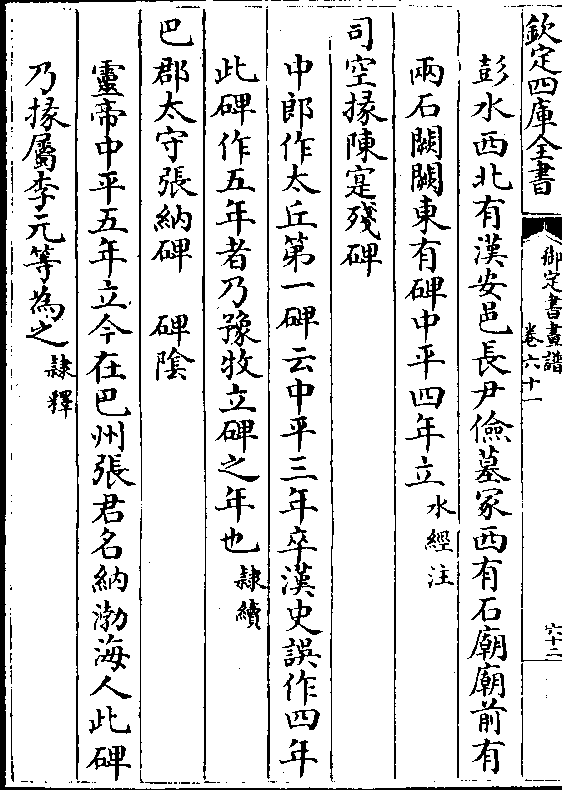 欽定四庫全書
御定書畫譜
卷六十一
六十二
彭水西北有漢安邑長尹儉墓冢西有石廟廟前有
兩石闕闕東有碑中平四年立水經注
司空掾陳寔殘碑
中郎作太丘第一碑云中平三年卒漢史誤作四年
此碑作五年者乃豫牧立碑之年也隷續
巴郡太守張納碑 碑陰
靈帝中平五年立今在巴州張君名納渤海人此碑
乃掾屬李元等為之隷釋